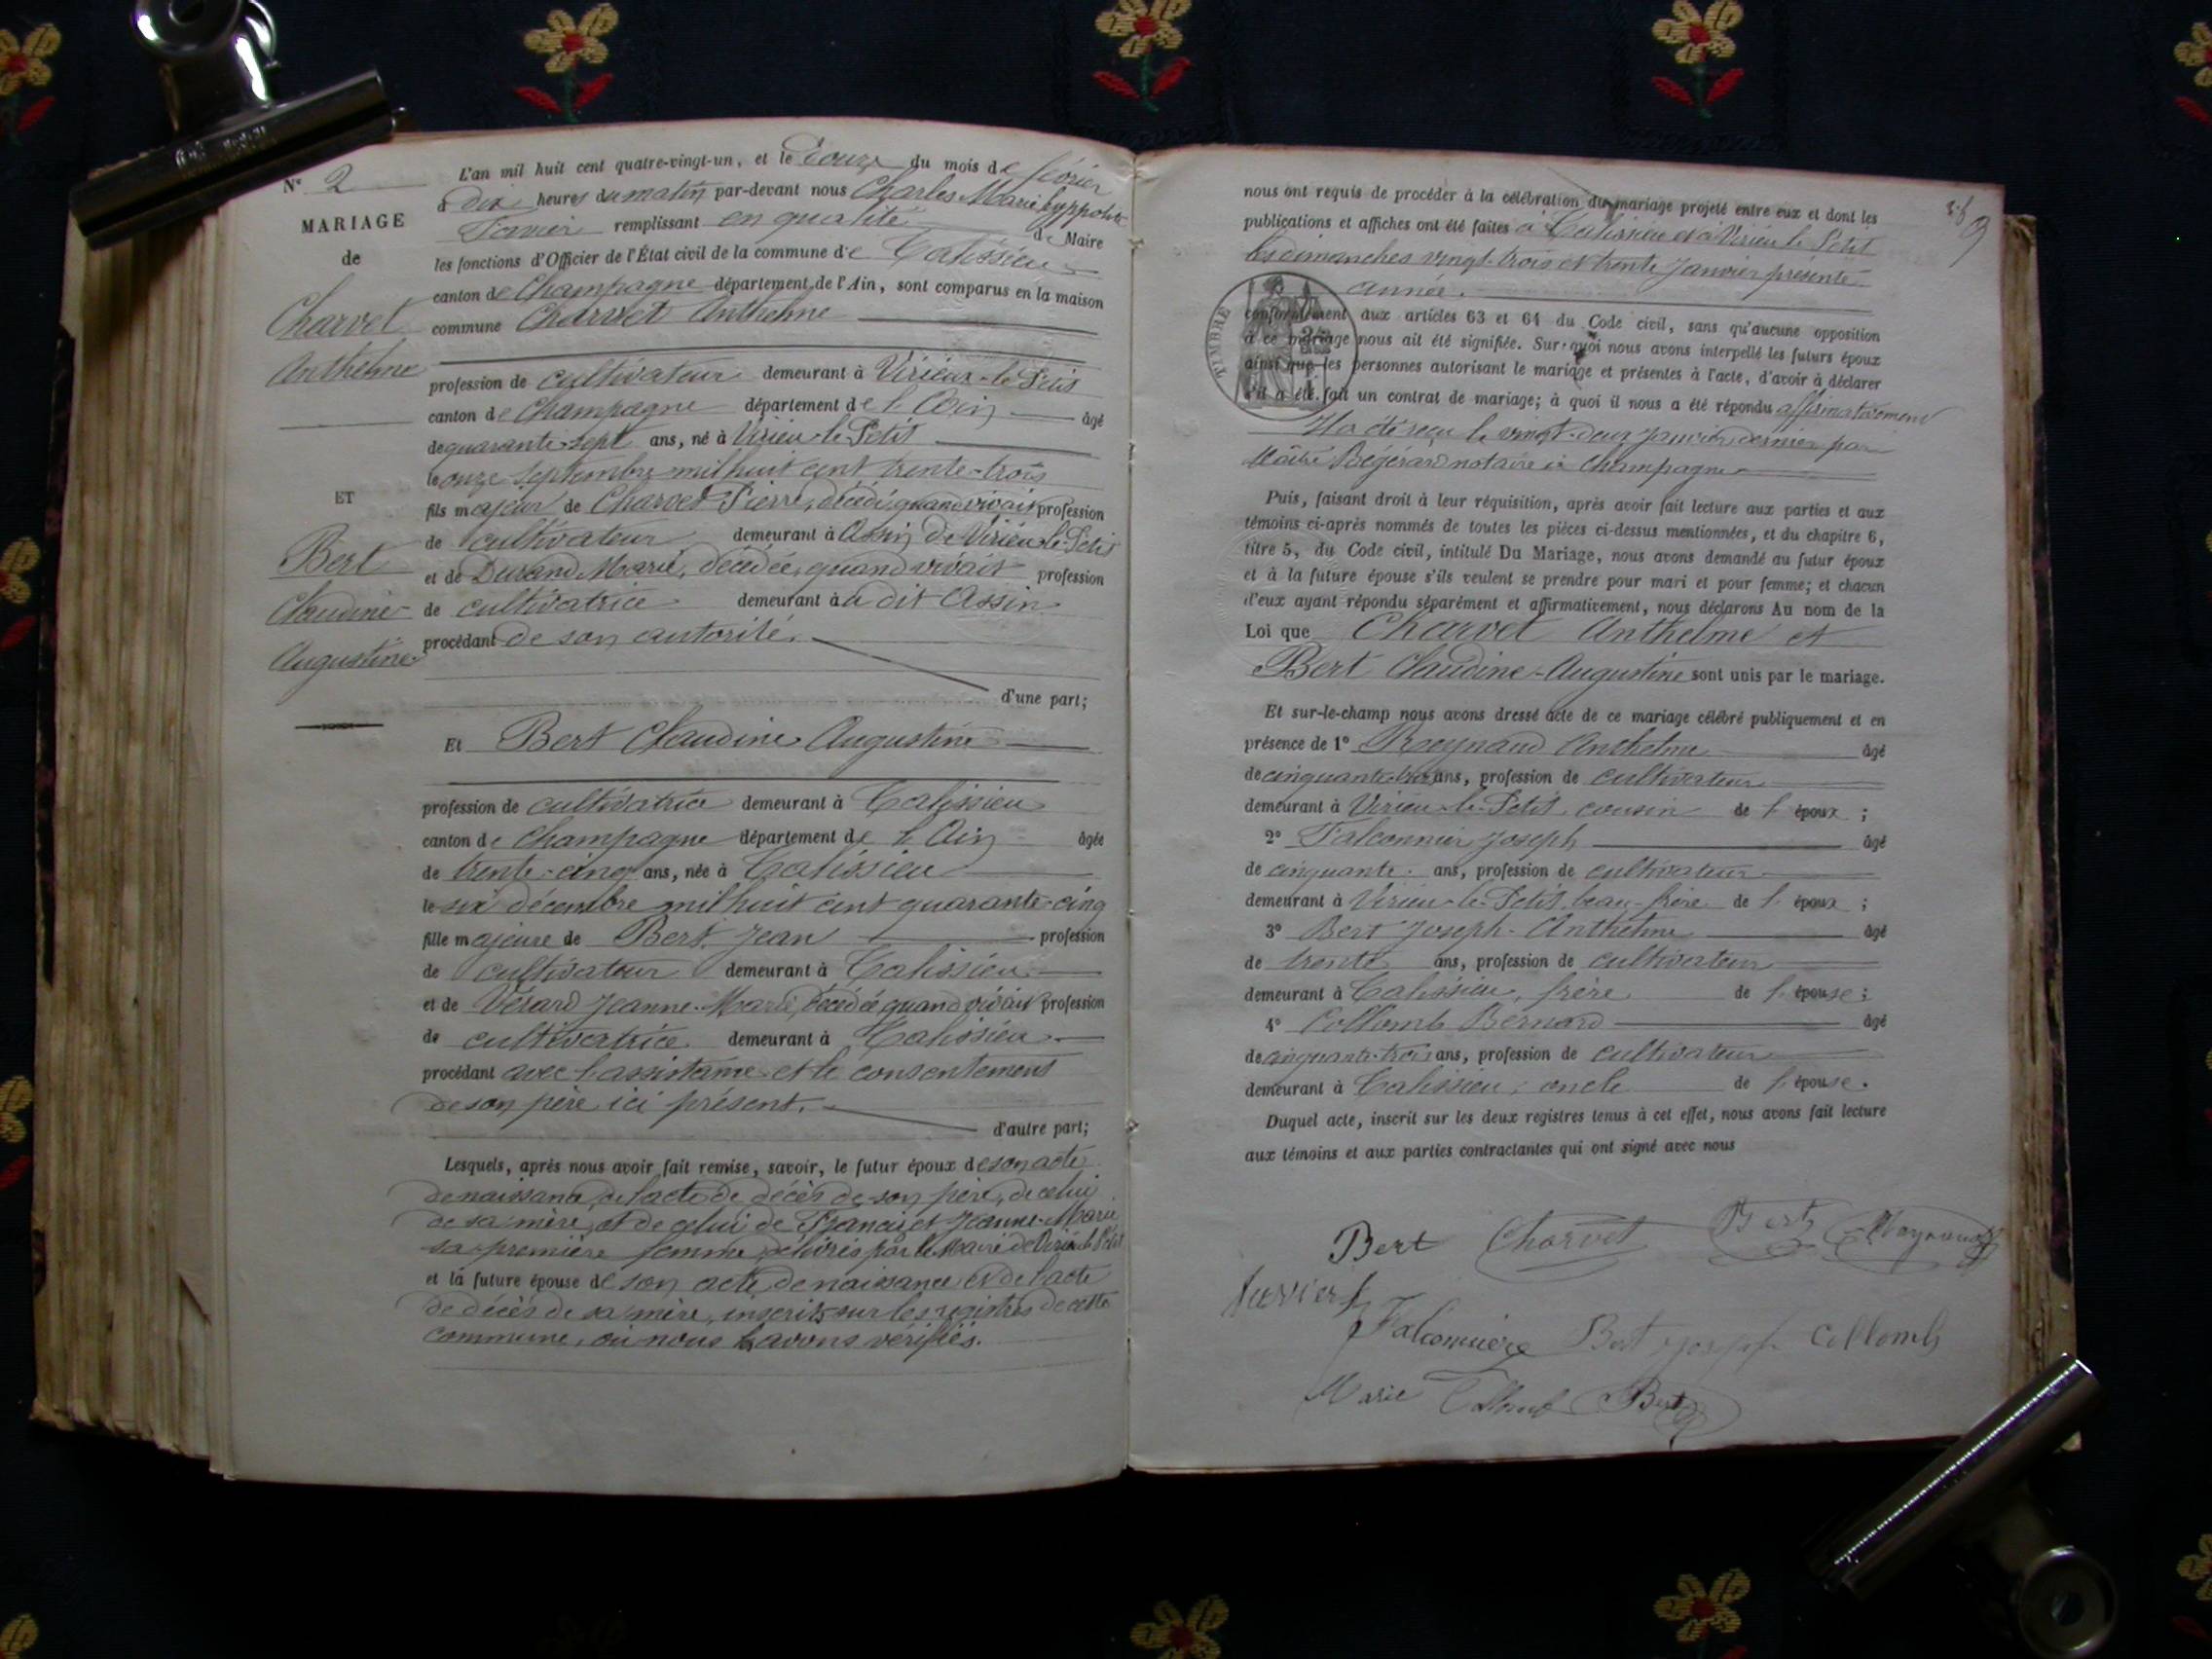 N° 2
MARIAGE
de
Charvet
Anthelme
ET
Bert
Claudine
Augustine
L'an mil huit cent quatre-vingt-un, et le douze du mois de février
à dix heures du matin par-devant nous Charles Marie hyppolite
remplissant en qualité de Maire
les fonctions d'Officier de l'État civil de la commune de Talissieu
canton de Champagne département de l'Ain, sont comparus en la maison
commune Charvet Anthelme
profession de cultivateur demeurant à Virieu-le-Petit
canton de Champagne département de l'Ain âgé
de quarante-sept ans, né à Virieu-le-Petit
le onze septembre mil huit cent trente-trois
fils majeur de Charvet Pierre, décédé, quand vivait profession
de cultivateur demeurant à Assin de Virieu-le-Petit
et de Durand Marie, décédée, quand vivait profession
de cultivatrice demeurant à u dit Assin
procédant de son autorité.
d'une part;
Et Bert Claudine Augustine
profession de cultivatrice demeurant à Talissieu
canton de Champagne département de l'Ain âgée
de trente-cinq ans, née à Talissieu
le six décembre mil huit cent quarante-cinq
fille majeure de Bert Jean profession
de cultivateur demeurant à Talissieu
et de Vérard Jeanne-Marie, décédée quand vivait profession
de cultivatrice demeurant à Talissieu
procédant avec l'assistance et le consentement
de son père ici présent.
d'autre part;
Lesquels, après nous avoir fait remise, savoir, le futur époux de son acte
de naissance, de l'acte de décès de son père, de celui
de sa mère, et de celui de Jeanne-Marie
sa première femme, délivrés par le Maire de Virieu le Petit
et la future épouse de son acte de naissance et de l'acte
de décès de sa mère, inscrits sur les registres de cette
commune, où nous les avons vérifiés.
nous ont requis de procéder à la célébration du mariage projeté entre eux et dont les
publications et affiches ont été faites à Talissieu et à Virieu le Petit
les dimanches vingt-trois et trente janvier présente
année.
TIMBRE
conformément aux articles 63 et 64 du Code civil, sans qu'aucune opposition
à ce mariage nous ait été signifiée. Sur quoi nous avons interpellé les futurs époux
ainsi que les personnes autorisant le mariage et présentes à l'acte, d'avoir à déclarer
s'il a été fait un contrat de mariage; à quoi il nous a été répondu affirmativement
Il a été reçu le vingt-deux janvier dernier par
Maître Bégérard notaire à Champagne
Puis, faisant droit à leur réquisition, après avoir fait lecture aux parties et aux
témoins ci-après nommés de toutes les pièces ci-dessus mentionnées, et du chapitre 6,
titre 5, du Code civil, intitulé Du Mariage, nous avons demandé au futur époux
et à la future épouse s'ils veulent se prendre pour mari et pour femme; et chacun
d'eux ayant répondu séparément et affirmativement, nous déclarons Au nom de la
Loi que Charvet Anthelme et
Bert Claudine-Augustine sont unis par le mariage.
Et sur-le-champ nous avons dressé acte de ce mariage célébré publiquement et en
présence de 1° Reynaud Anthelme âgé
de cinquante-trois ans, profession de cultivateur
demeurant à Virieu-le-Petit, cousin de l'époux;
2° Falconnier Joseph âgé
de cinquante ans, profession de cultivateur
demeurant à Virieu-le-Petit, beau-frère de l'époux;
3° Bert Joseph-Anthelme âgé
de trente ans, profession de cultivateur
demeurant à Talissieu, frère de l'épouse;
4° Collomb Bernard âgé
de cinquante-trois ans, profession de cultivateur
demeurant à Talissieu, oncle de l'épouse.
Duquel acte, inscrit sur les deux registres tenus à cet effet, nous avons fait lecture
aux témoins et aux parties contractantes qui ont signé avec nous
Bert Charvet Bert Reynaud
Bert Joseph Collomb
Marie Bert